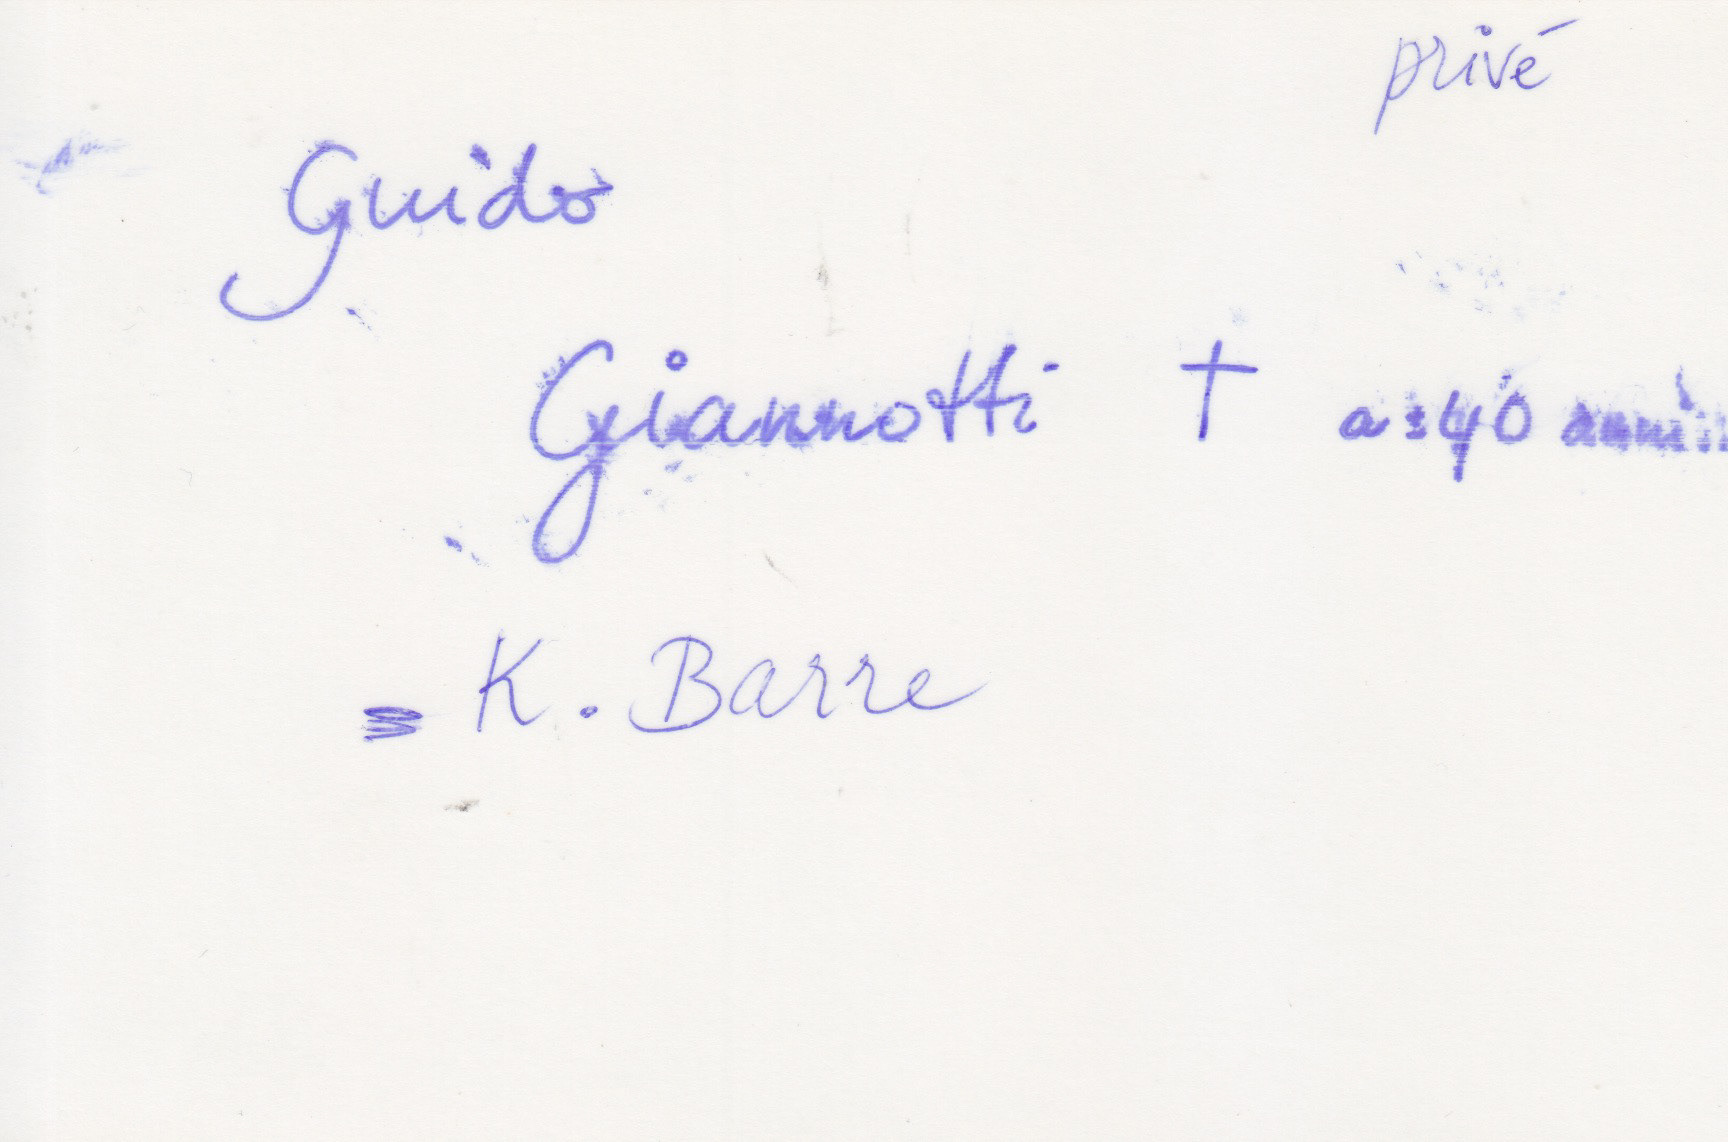 privé
Guido
Giannotti † a ± 40 anni
= K. Barre